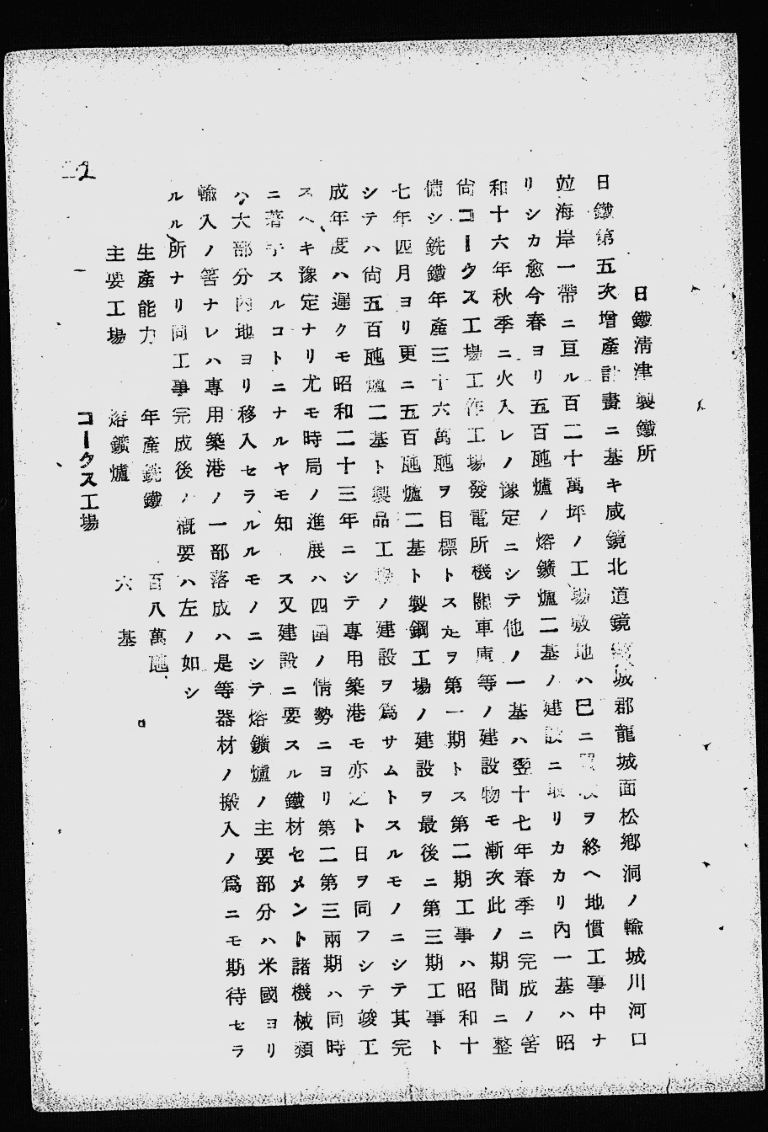 2
日鐵淸津製鐵所
日鐵第五次增產計畫ニ基キ咸鏡北道鏡城郡龍城面松鄕洞ノ輸城川河口
竝海岸一帶ニ亘ル百二十萬坪ノ工場敷地ハ已ニ買收ヲ終ヘ地慣工事中ナ
リシカ愈今春ヨリ五百瓲爐ノ熔鑛爐二基ノ建設ニ取リカカリ內一基ハ昭
和十六年秋季ニ火入レノ豫定ニシテ他ノ一基ハ翌十七年春季ニ完成ノ筈
尙コークス工場工作工場發電所機關車庫等ノ建設物モ漸次此ノ期間ニ整
備シ銑鐵年產三十六萬瓲ヲ目標トス之ヲ第一期トス第二期工事ハ昭和十
七年四月ヨリ更ニ五百瓲爐二基ト製鋼工場ノ建設ヲ最後ニ第三期工事ト
シテハ尙五百瓲爐二基ト製品工場ノ建設ヲ爲サムトスルモノニシテ其完
成年度ハ遲クモ昭和二十三年ニシテ專用築港モ亦之ト日ヲ同フシテ竣工
スヘキ豫定ナリ尤モ時局ノ進展ハ四圍ノ情勢ニヨリ第二第三兩期ハ同時
ニ著手スルコトニナルヤモ知ス又建設ニ要スル鐵材セメント諸機械類
ハ大部分內地ヨリ移入セラルルモノニシテ熔鑛爐ノ主要部分ハ米國ヨリ
輸入ノ筈ナレハ專用築港ノ一部落成ハ是等器材ノ搬入ノ爲ニモ期待セラ
ルル所ナリ同工事完成後ノ槪要ハ左ノ如シ
生產能力 年產銑鐵 百八萬瓲
主要工場 熔鑛爐 六基
コークス工場